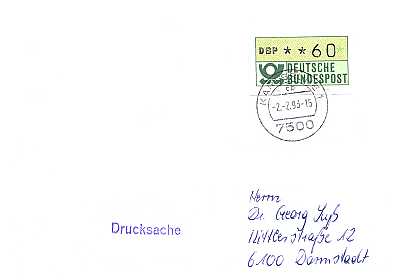 DBP ** 60
DEUTSCHE
BUNDESPOST
KARLSRUHE 1
cp
-2.-2.93-15
7500
Drucksache
Herrn
Dr. Georg
12
6100 Darmstadt